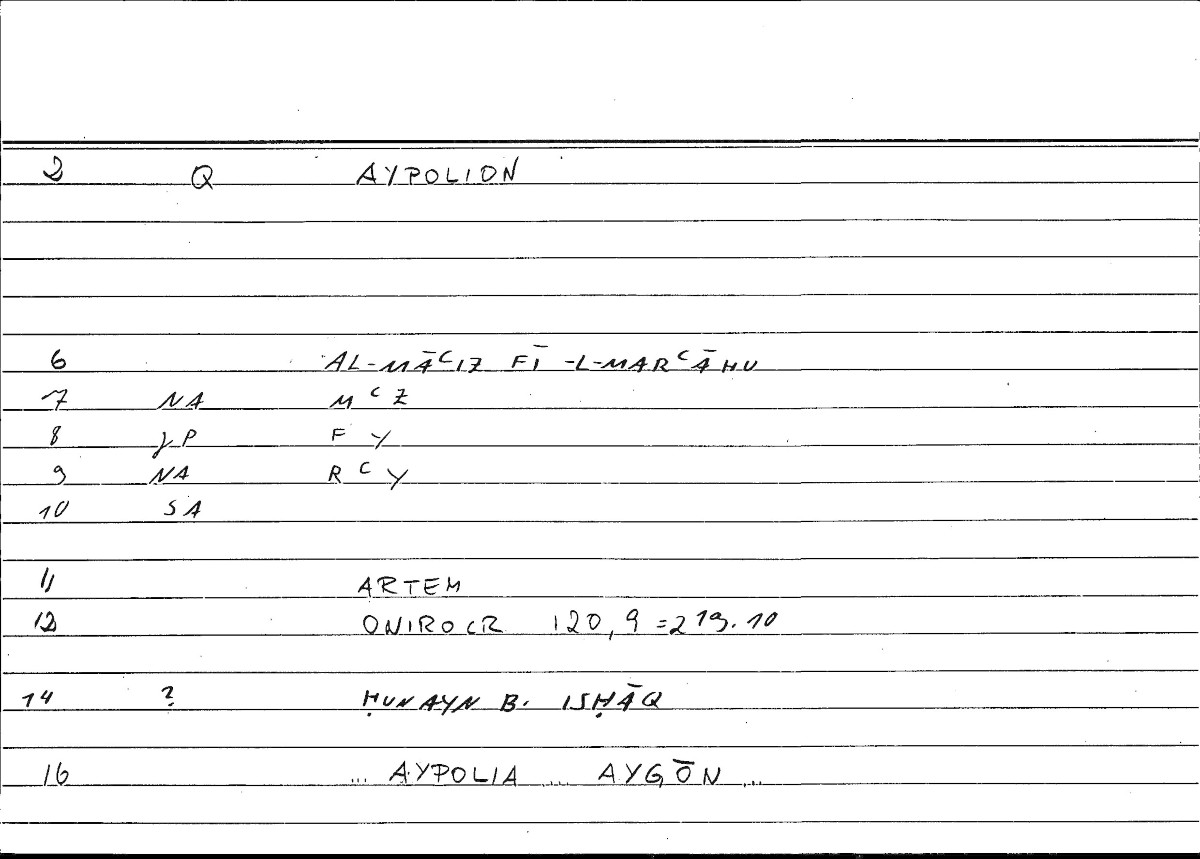 2 Q AYPOLION
6 AL-MĀʿIZ FĪ -L-MARʿĀHU
7 NA MʿZ
8 γP F Y
9 NA RʿY
10 SA
11 ARTEM
12 ONIROCR 120,9=219.10
14 ? ḤUNAYN B. ISḤĀQ
16 ... AYPOLIA ... AYGŌN ...